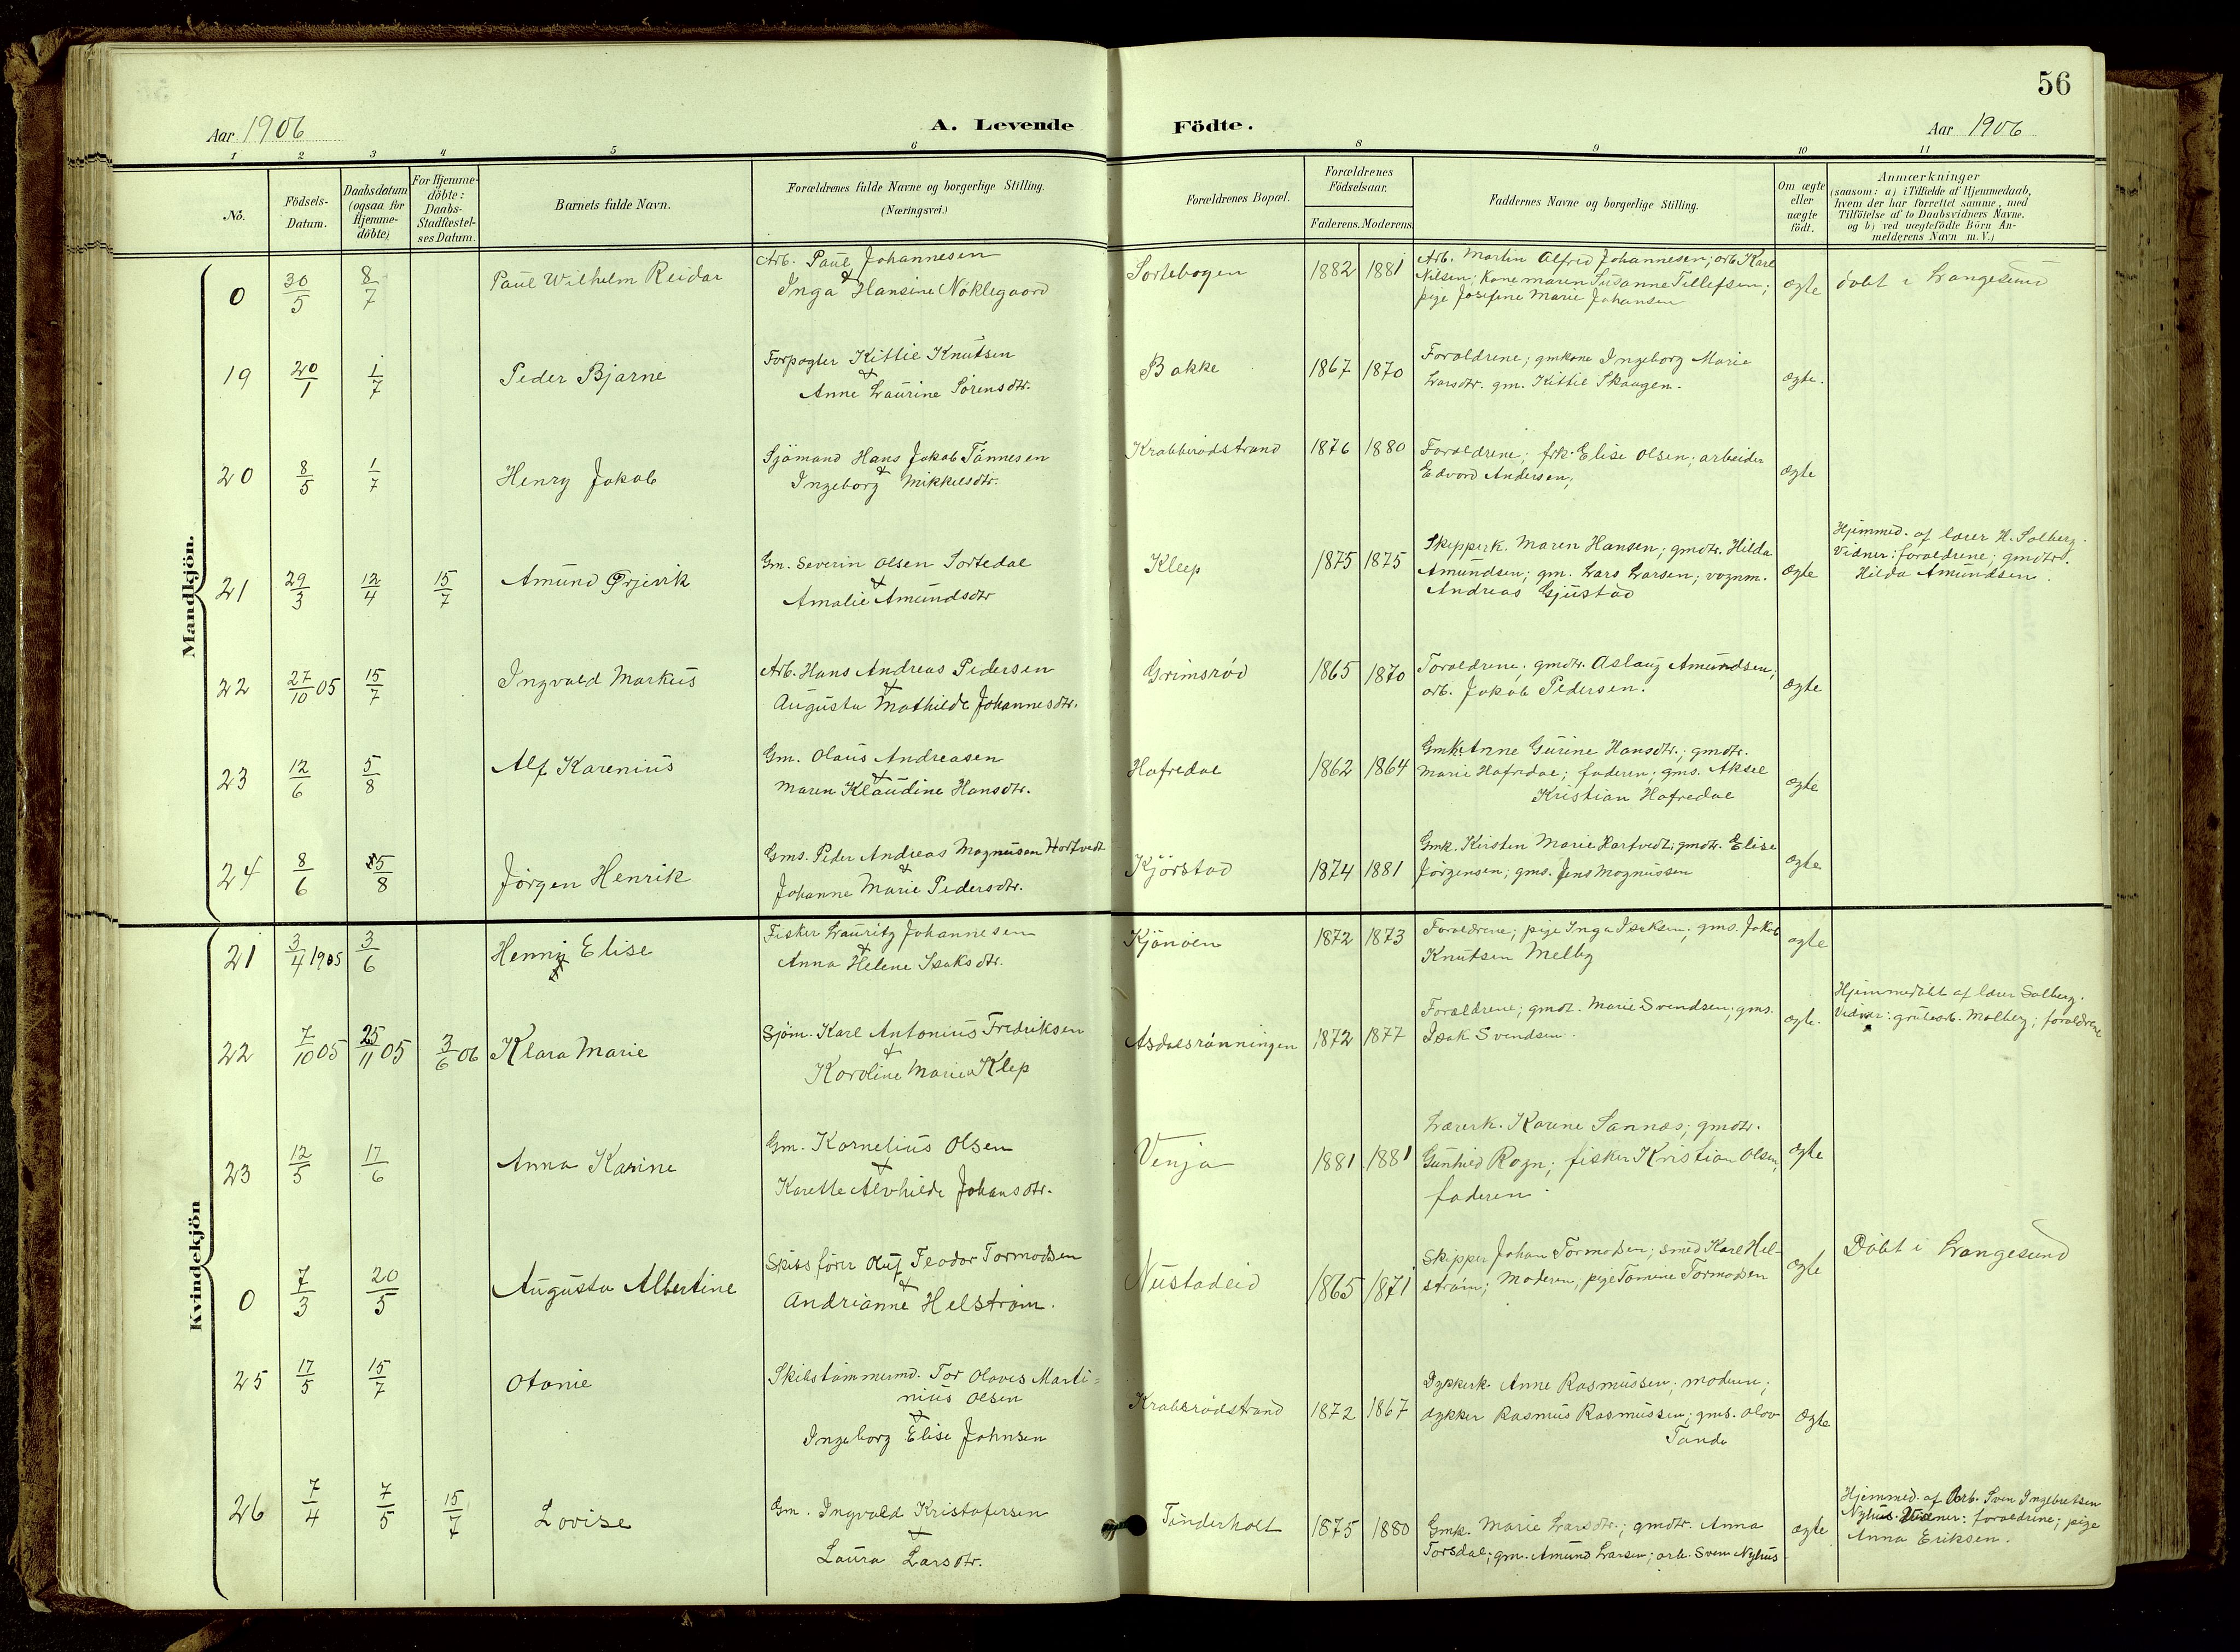 56
Aar 1906
A. Levende Födte.
Aar 1906
1 2 3 4 5 6 8 9 10 11
No.
Födsels-
Datum.
Daabsdatum
(ogsaa for
Hjemme-
döbte)
For Hjemme-
döbte:
Daabs-
Stadfæstel-
ses Datum.
Barnets fulde Navn.
Forældrenes fulde Navne og borgerlige Stilling.
(Næringsvei.)
Forældrenes Bopæl.
Forældrenes
Födselsaar.
Faderens. Moderens
Faddernes Navne og borgerlige Stilling.
Om ægte
eller
uægte
födt.
Anmærkninger
(saasom: a) i Tilfælde af Hjemmedaab,
hvem der har forrettet samme, med
Tilföielse af to Daabsvidners Navne.
og b) ved uægtefödte Börn An-
melderens Navn m. V.)
Mandkjön.
0 30/5 8/7 Paul Wilhelm Reidar
Arb. Paul Johannesen
&
Inga Hansine Nöklegaard
Sortebogen 1882 1881
Arb. Martin Alfred Johannesen; arb. Karl
Nilsen; Kone Maren Susanne Tellefsen;
pige Josefine Marie Johansen
ægte döbt i Langesund
19 20/1 1/7 Peder Bjarne
Forpagter Kittil Knutsen
&
Anne Laurine Sörensdtr.
Bakke 1867 1870
Forældrene; gmkone Ingeborg Marie
Larsdtr. gm. Kittil Skaugen.
ægte.
20 8/5 1/7 Henry Jakob
Sjömand Hans Jakob Tönnesen
&
Ingeborg Mikkelsdtr.
Krabberödstrand 1876 1880
Forældrene; frk. Elise Olsen; arbeider
Edvard Andersen;
ægte
21 29/3 12/4 15/7 Amund Ørjevik
Gm. Severin Olsen Sortedal
&
Amalie Amundsdtr
Kleep 1875 1875
Skipperk. Maren Hansen; gmdtr. Hilda
Amundsen; gm. Lars Larsen; vognm.
Andreas Gjustad
ægte
Hjemmed. af lærer H. Solberg.
Vidner: forældrene; gmdtr.
Hilda Amundsen.
22 27/10 05 15/7 Ingvald Markus
Arb. Hans Andreas Pedersen
&
Augusta Mathilde Johannesdtr.
Grimsröd 1865 1870
Forældrene; gmdtr. Aslaug Amundsen;
arb. Jakob Pedersen.
ægte
23 12/6 5/8 Alf Karenius
Gm. Olaus Andreasen
&
Maren Klaudine Hansdtr.
Hafredal 1862 1864
Gmk. Anne Gurine Hansdtr.; gmdtr.
Marie Hafredal; faderen; gms. Aksel
Kristian Hafredal
ægte
24 8/6 5/8 Jörgen Henrik
Gms. Peder Andreas Magnusen Hartvedt
&
Johanne Marie Pedersdtr.
Kjörstad 1874 1881
Gmk. Kirsten Marie Hartvedt; gmdtr. Elise
Jörgensen; gms. Jens Magnussen
ægte
Kvindekjön
21 3/4 1905 3/6 Henny Elise
Fisker Lauritz Johannesen
&
Anna Helene Isaksdtr.
Kjönöen 1872 1873
Forældrene; pige Inga Isaksen; gms. Jakob
Knutsen Melby
ægte
22 7/10 05 25/11 05 3/6 06 Klara Marie
Sjöm. Karl Antonius Fredriksen
&
Karoline Marie Klep
Asdalsrönningen 1872 1877
Forældrene; gmdt. Marie Svendsen; gms.
Isak Svendsen.
ægte.
Hjemmedöbt af lærer Solberg.
Vidner: grubearb. Molberg; forældrene
23 12/5 17/6 Anna Karine
Gm. Kornelius Olsen
&
Karette Alvhilde Johansdtr.
Venja 1881 1881
Lærerk. Karine Sannæs; gmdtr.
Gunhild Rogn; fisker Kristian Olsen,
faderen.
ægte
0 7/3 20/5 Augusta Albertine
Skibsförer Oluf Teodor Tormodsen
&
Andrianne Helström.
Nustadeid 1865 1871
Skipper Johan Tormodsen; smed Karl Hel-
ström; Moderen; pige Tomine Tormodsen
ægte
Döbt i Langesund
25 17/5 15/7 Otonie
Skibstömmermd. Tor Olaves Marti=
nius Olsen
&
Ingeborg Elise Johnsen
Krabberödstrand 1872 1867
Dykkerk. Anne Rasmussen; moderen;
dykker Rasmus Rasmussen; gms. Olav
Tande
ægte
26 7/4 7/5 15/7 Lovise
Gm. Ingvald Kristofersen
&
Laura Larsdtr.
Tinderholt 1875 1880
Gmk. Marie Larsdtr.; gmdtr. Anna
Torsdal; gm. Amund Larsen; arb. Sven Nyhus
ægte
Hjemmed. af Arb. Sven Ingebretsen
Nyhus. Vidner: forældrene; pige
Anna Eriksen.